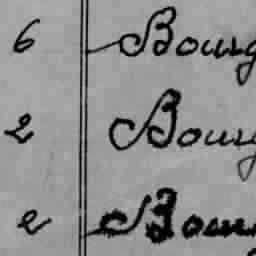 6 Bourg
2 Bourg
2 Bourg